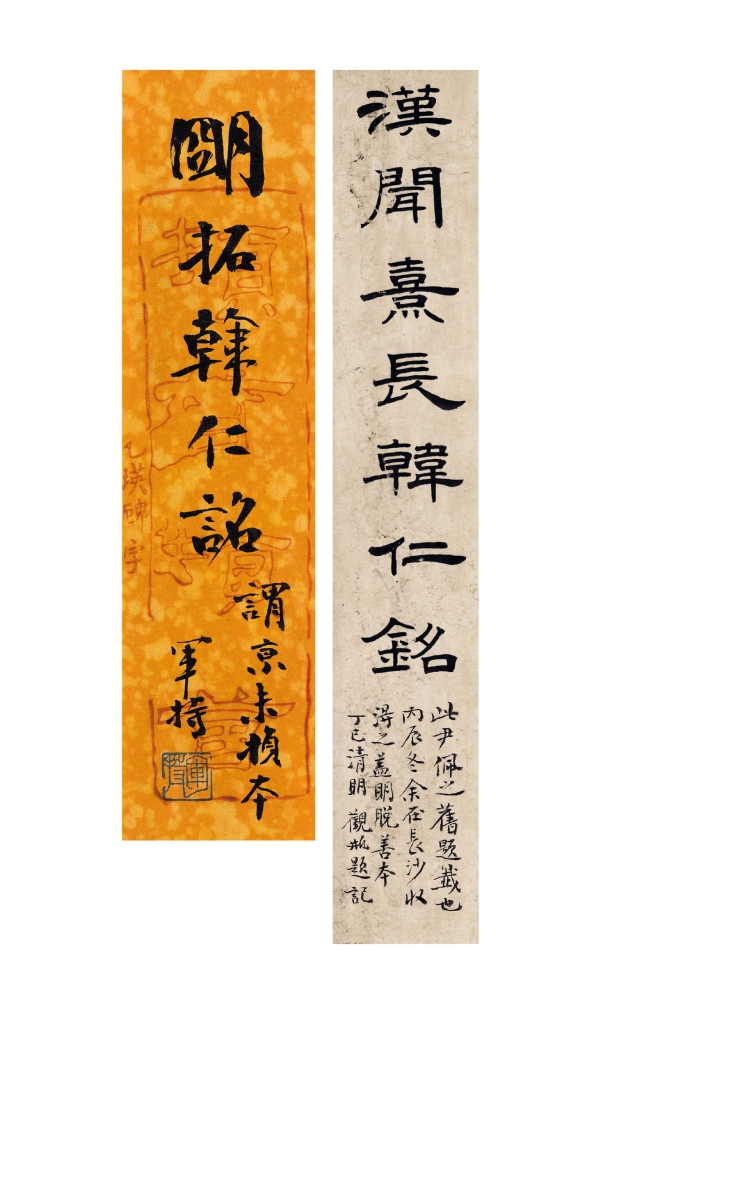 漢聞熹長韓仁銘
此尹佩之舊題籤也
丙辰冬余在長沙收
得之蓋明脫善本
丁巳清明觀瓶題記
朙拓韓仁詺
謂京未損本
軍持
乙瑛碑字